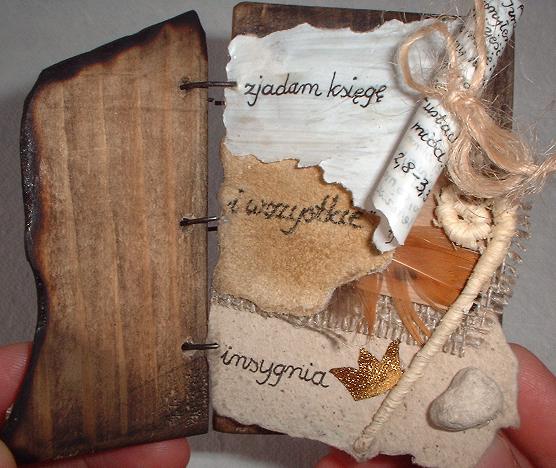 zjadam księgę
i wszystkie
insygnia
ustach
miód
2,8-3,3